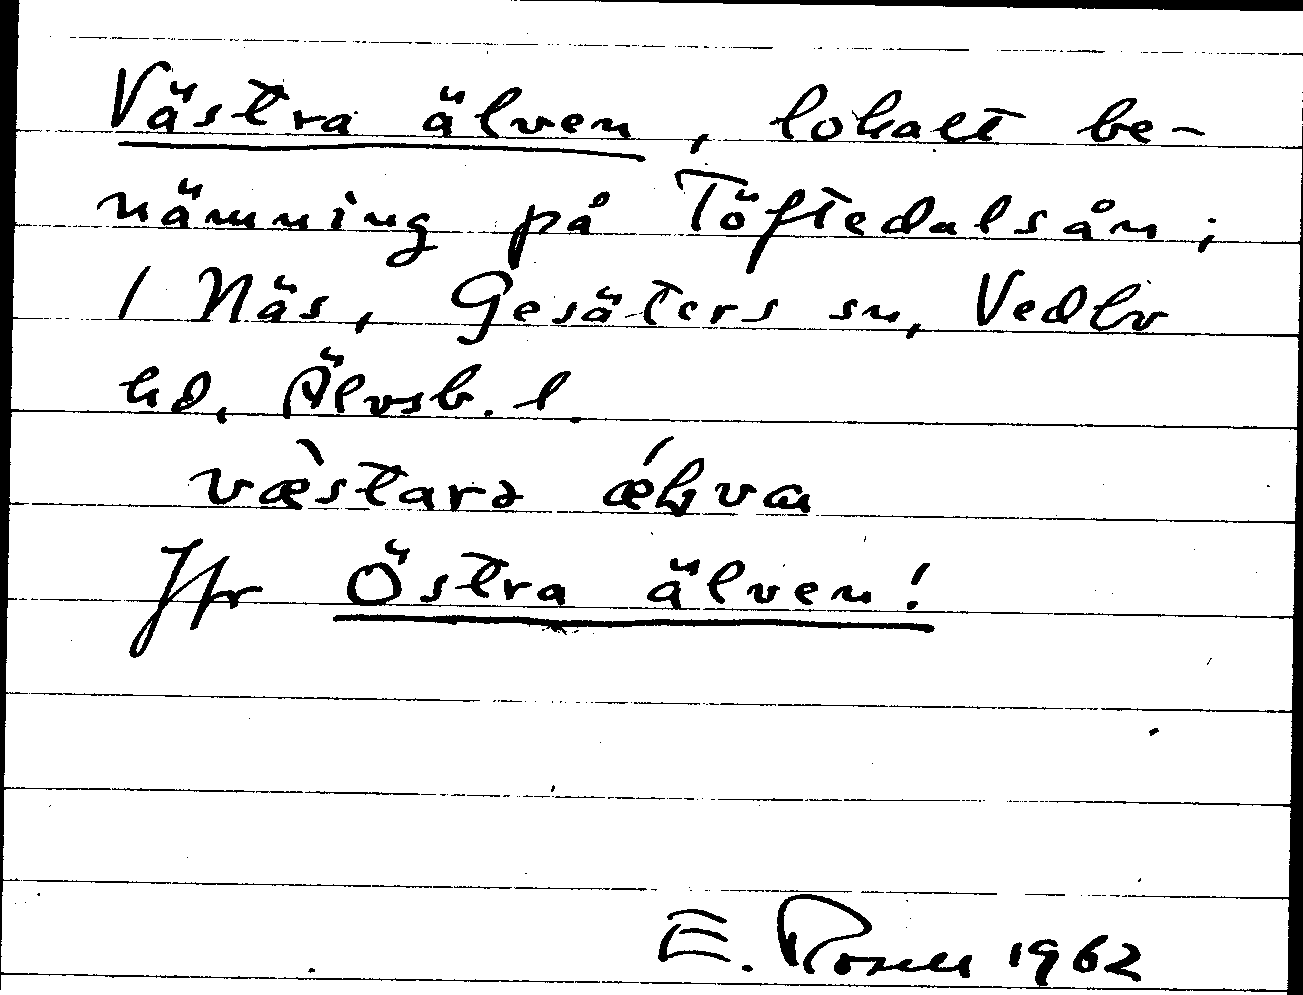 Västra älven, lokalt be-
nämning på Töftedalsån;
/ Näs, Gesäters sn, Vedbo
hd, Älvsb. l.
væ̀stara
Jfr Östra älven!
E. Rosell 1962